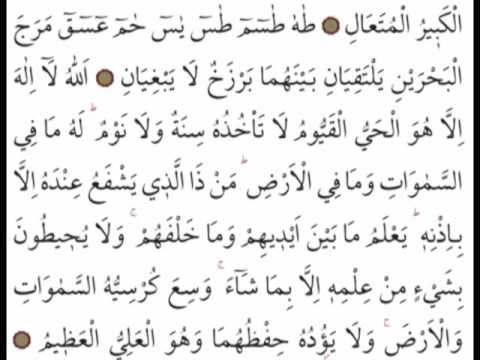 الْكَبٖيرُ الْمُتَعَالِ ۝ طٰهٰ طٰسٓمٓ طٰسٓ يٰسٓ حٰمٓ عٓسٓقٓ مَرَجَ
الْبَحْرَيْنِ يَلْتَقِيَانِ بَيْنَهُمَا بَرْزَخٌ لَا يَبْغِيَانِ ۝ اَللّٰهُ لَٓا اِلٰهَ
اِلَّا هُوَ الْحَيُّ الْقَيُّومُ لَا تَاْخُذُهُ سِنَةٌ وَلَا نَوْمٌ ۜ لَهُ مَا فِي
السَّمٰوَاتِ وَمَا فِي الْاَرْضِ ۜ مَنْ ذَا الَّذٖي يَشْفَعُ عِنْدَهُ اِلَّا
بِاِذْنِهٖ ۜ يَعْلَمُ مَا بَيْنَ اَيْدٖيهِمْ وَمَا خَلْفَهُمْ ۚ وَلَا يُحٖيطُونَ
بِشَيْءٍ مِنْ عِلْمِهٖ اِلَّا بِمَا شَٓاءَ ۚ وَسِعَ كُرْسِيُّهُ السَّمٰوَاتِ
وَالْاَرْضَ ۚ وَلَا يَؤُ۫دُهُ حِفْظُهُمَا وَهُوَ الْعَلِيُّ الْعَظٖيمُ ۝